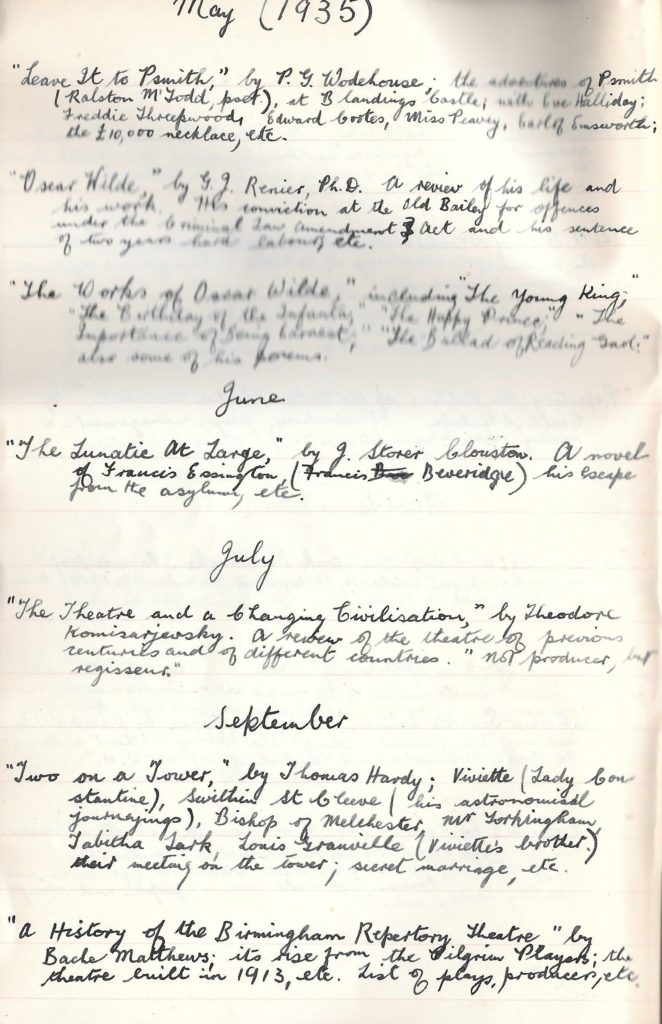 May (1935)
"Leave It to Psmith," by P. G. Wodehouse; the adventures of Psmith
(Ralston M'Todd, poet), at Blandings Castle, with Eve Halliday;
Freddie Threepwood, Edward Cootes, Miss Peavey, Earl of Emsworth;
the £10,000 necklace, etc.
"Oscar Wilde," by G. J. Renier, Ph.D. A review of his life and
his work. His conviction at the Old Bailey for offences
under the Criminal Law Amendment Act and his sentence
of two years hard labour, etc.
"The Works of Oscar Wilde," including "The Young King,"
"The Birthday of the Infanta," "The Happy Prince," "The
Importance of Being Earnest," "The Ballad of Reading Gaol."
also some of his poems.
June
"The Lunatic At Large," by J. Storer Clouston. A novel
of Francis Essington, (Francis Beveridge) his escape
from the asylum, etc.
July
"The Theatre and a Changing Civilisation," by Theodore
Komisarjevsky. A review of the theatre of previous
centuries and of different countries. "Not producer, but
regisseur."
September
"Two on a Tower," by Thomas Hardy; Viviette (Lady Con
stantine), Swithin St Cleeve (his astronomical
journeyings), Bishop of Melchester, Mr Torkingham,
Tabitha Lark, Louis Glanville (Viviette's brother)
their meeting on the tower; secret marriage, etc.
"A History of the Birmingham Repertory Theatre" by
Bache Matthews; its rise from the Pilgrim Players; the
theatre built in 1913, etc. List of plays, producers, etc.